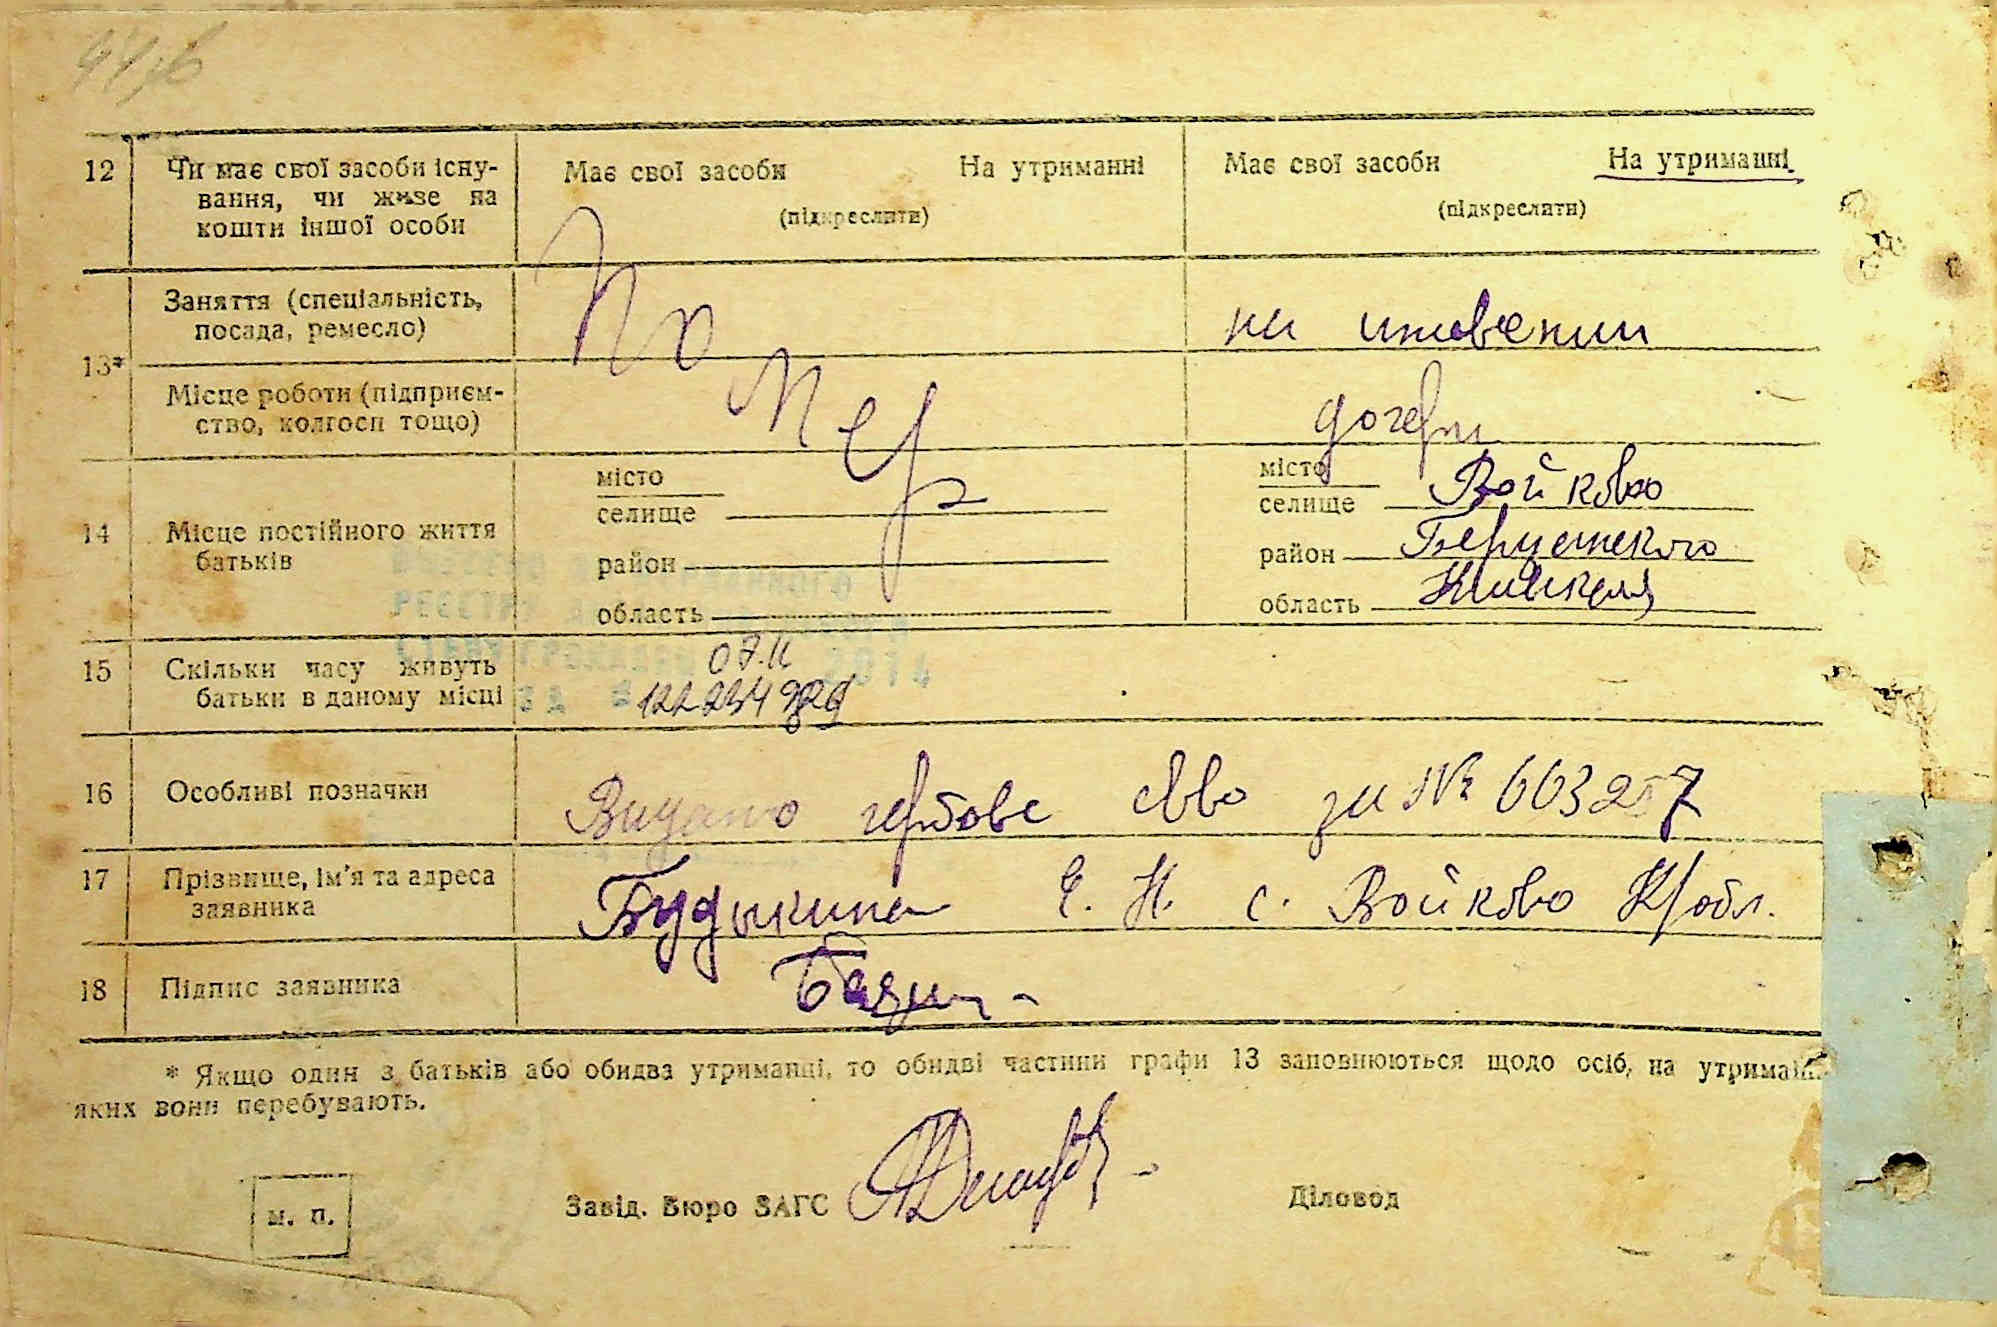 12 Чи має свої засоби існу-
вання, чи живе на
кошти іншої особи
Має свої засоби На утриманні
(підкреслити)
Має свої засоби На утриманні
(підкреслити)
13* Заняття (спеціальність,
посада, ремесло)
Помер
на иждвении
Місце роботи (підприєм-
ство, колгосп тощо)
дочери
14 Місце постійного життя
батьків
місто
селище
район
область
місто
селище Войково
район
область
15 Скільки часу живуть
батьки в даному місці
07.11
2014
16 Особливі позначки
Видано гербове св-во за № 663257
17 Прізвище, ім'я та адреса
заявника
Будыкина Е. Н. с. Войково К/обл.
18 Підпис заявника
* Якщо один з батьків або обидва утриманці, то обидві частини графи 13 заповнюються щодо осіб, на утриман
яких вони перебувають.
м. п.
Завід. Бюро ЗАГС
Діловод